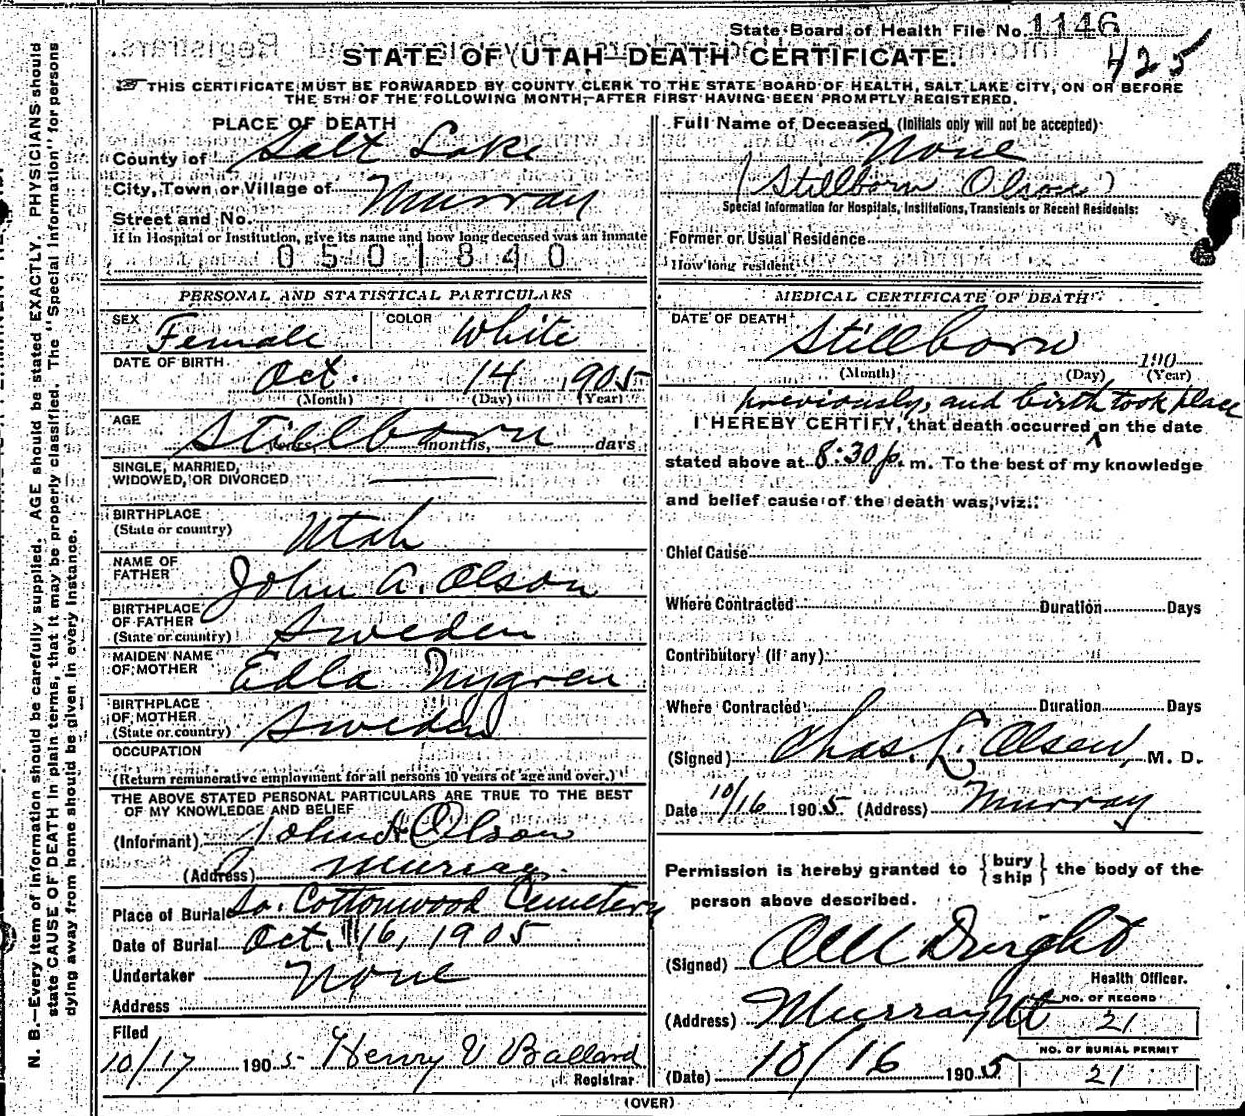 State Board of Health File No. 1146
425
STATE OF UTAH—DEATH CERTIFICATE.
THIS CERTIFICATE MUST BE FORWARDED BY COUNTY CLERK TO THE STATE BOARD OF HEALTH, SALT LAKE CITY, ON OR BEFORE
THE 5TH OF THE FOLLOWING MONTH, AFTER FIRST HAVING BEEN PROMPTLY REGISTERED.
N. B.—Every item of information should be carefully supplied. AGE should be stated EXACTLY. PHYSICIANS should
state CAUSE OF DEATH in plain terms, that it may be properly classified. The "Special Information" for persons
dying away from home should be given in every instance.
PLACE OF DEATH
County of Salt Lake
City, Town or Village of Murray
Street and No.
If in Hospital or Institution, give its name and how long deceased was an inmate
0501840
PERSONAL AND STATISTICAL PARTICULARS
SEX Female COLOR White
DATE OF BIRTH Oct. 14 1905
(Month) (Day) (Year)
AGE Stillborn
years, months, days
SINGLE, MARRIED,
WIDOWED, OR DIVORCED —
BIRTHPLACE
(State or country) Utah
NAME OF
FATHER John A. Olson
BIRTHPLACE
OF FATHER
(State or country) Sweden
MAIDEN NAME
OF MOTHER Edla Nygren
BIRTHPLACE
OF MOTHER
(State or country) Sweden
OCCUPATION
(Return remunerative employment for all persons 10 years of age and over.)
THE ABOVE STATED PERSONAL PARTICULARS ARE TRUE TO THE BEST
OF MY KNOWLEDGE AND BELIEF
(Informant) John A Olson
(Address) Murray.
Place of Burial So. Cottonwood Cemetery
Date of Burial Oct. 16, 1905
Undertaker None
Address
Filed
10/17 1905 Henry V Ballard
Registrar
Full Name of Deceased (Initials only will not be accepted)
None
(Stillborn Olson)
Special Information for Hospitals, Institutions, Transients or Recent Residents:
Former or Usual Residence
How long resident
MEDICAL CERTIFICATE OF DEATH
DATE OF DEATH Stillborn 190
(Month) (Day) (Year)
previously, and birth took place
I HEREBY CERTIFY, that death occurred ^ on the date
stated above at 8:30 p. m. To the best of my knowledge
and belief cause of the death was, viz.:
Chief Cause
Where Contracted Duration Days
Contributory (If any):
Where Contracted Duration Days
(Signed) Chas. L. Olsen, M. D.
Date 10/16 1905 (Address) Murray
Permission is hereby granted to {bury ship} the body of the
person above described.
(Signed) Dwight
Health Officer.
(Address) Murray Ut
NO. OF RECORD
21
NO. OF BURIAL PERMIT
(Date) 10/16 1905 21
(OVER)